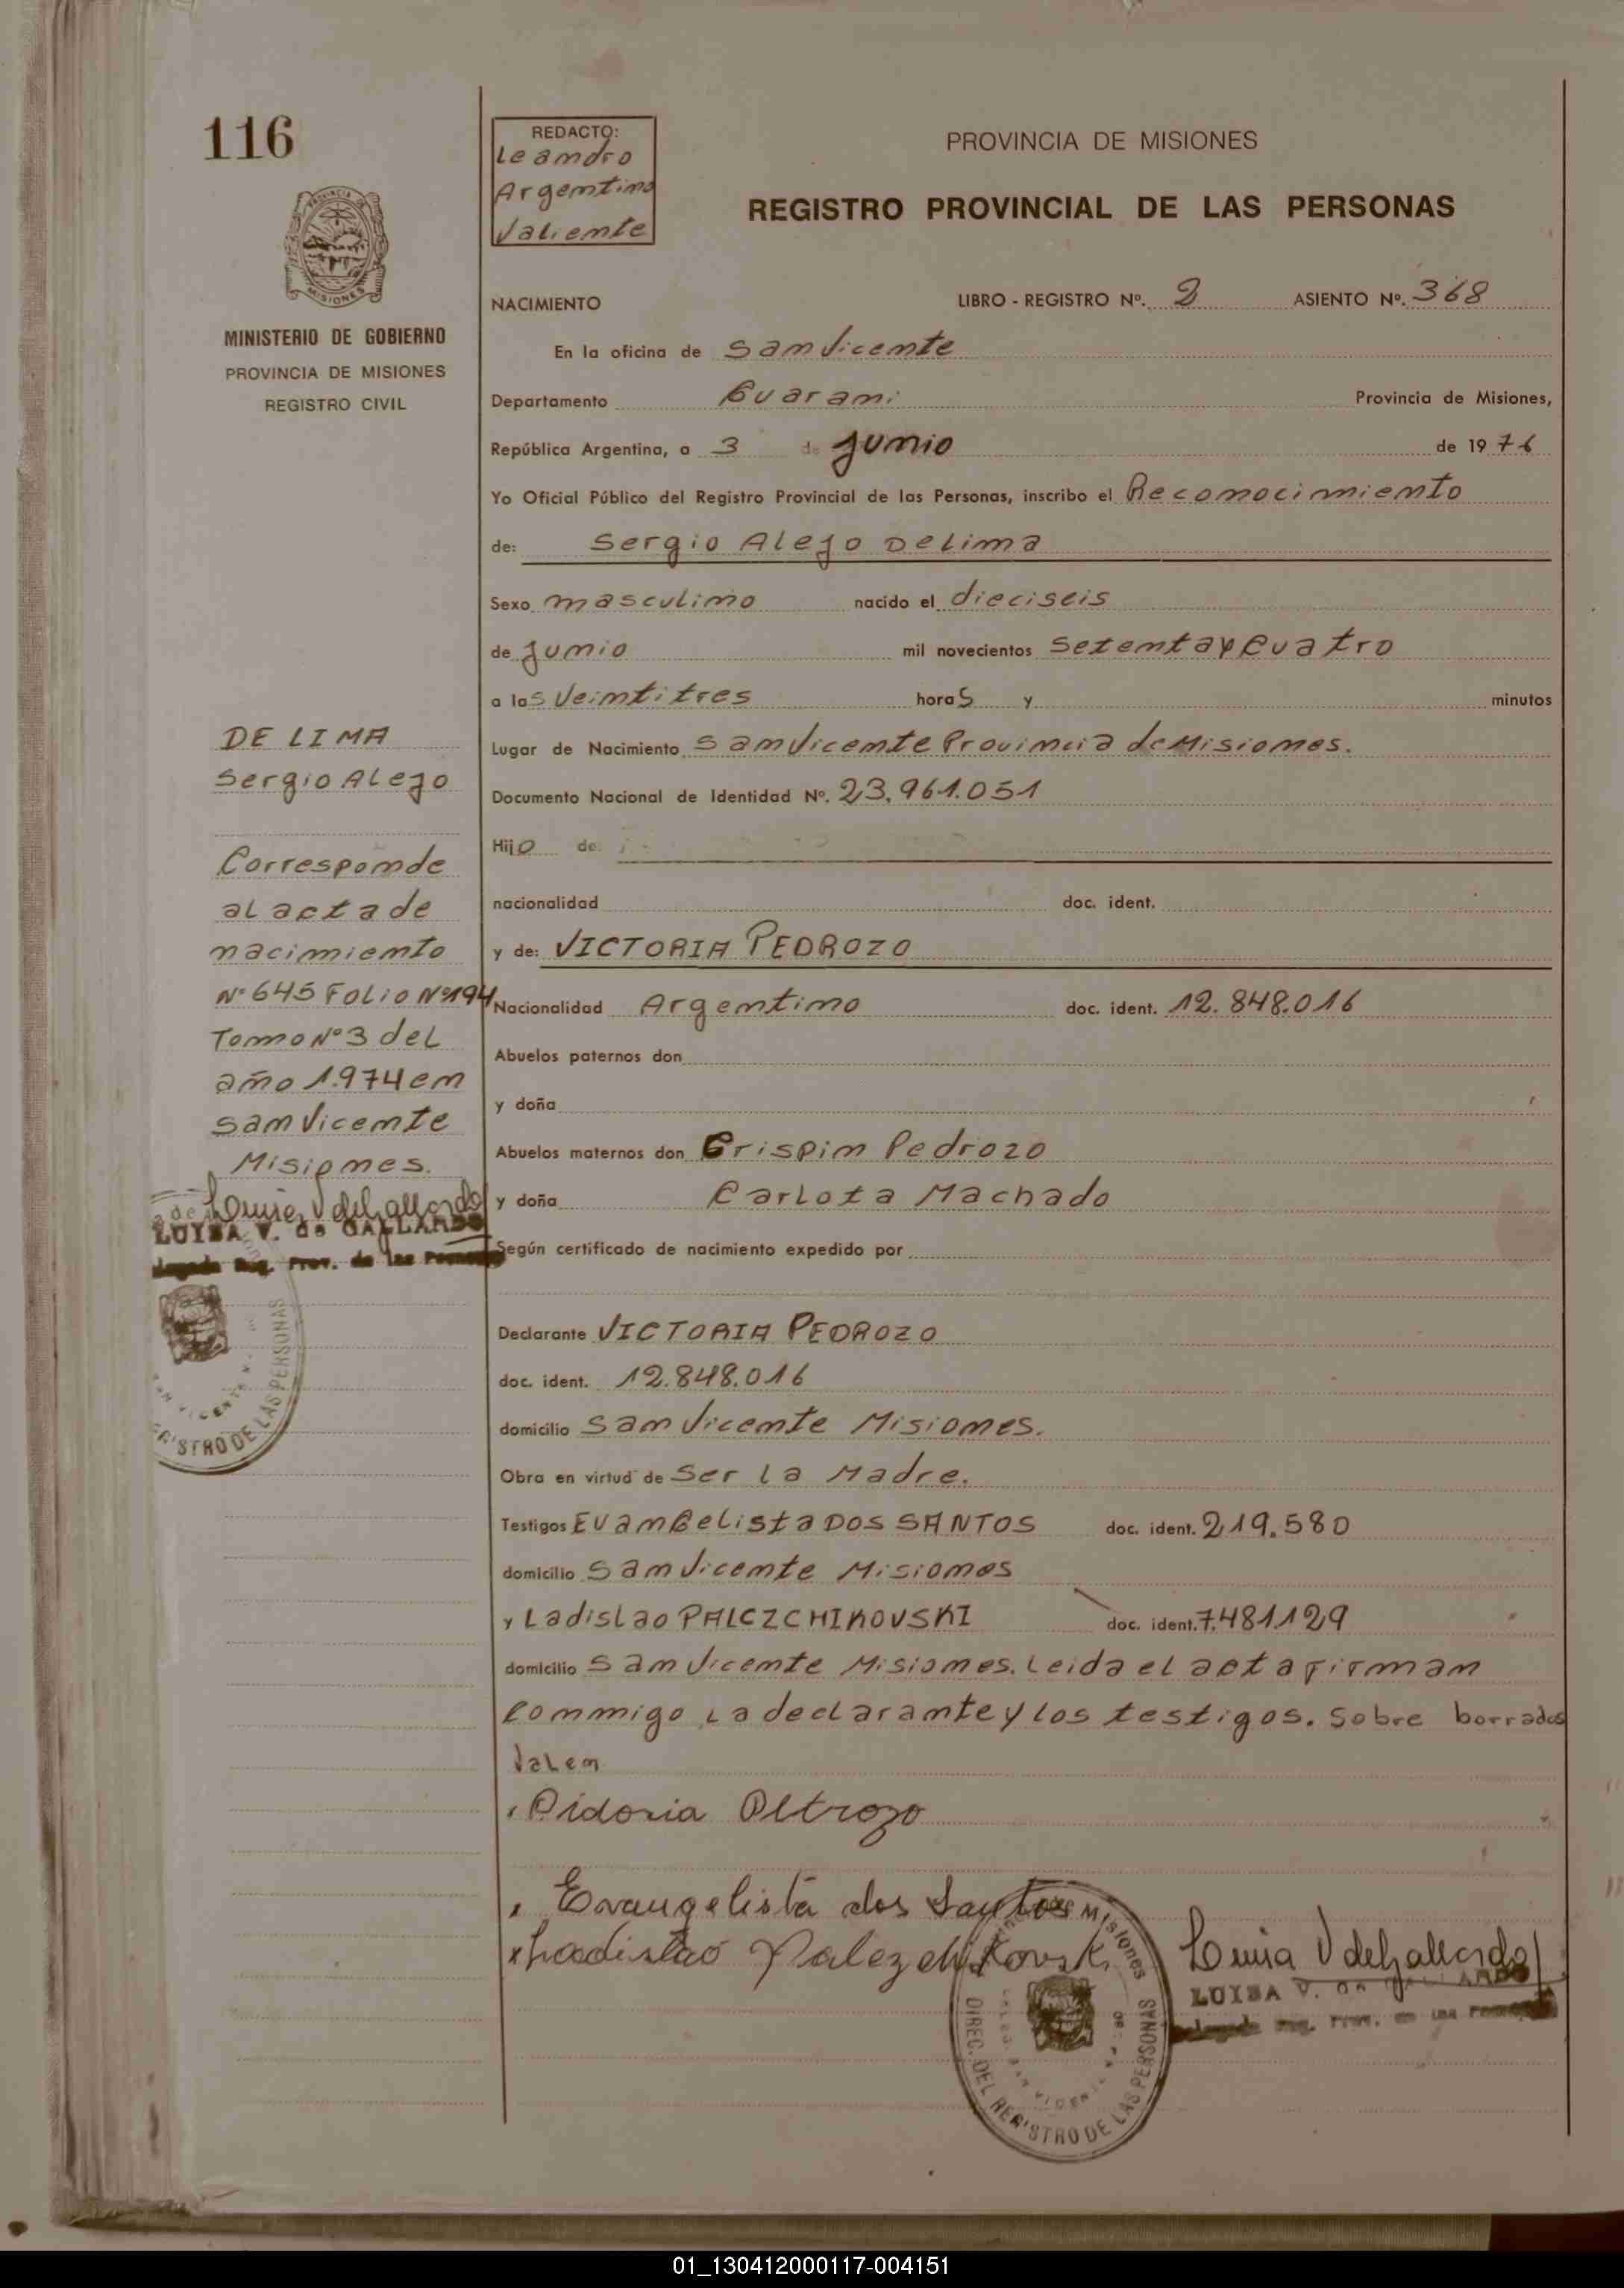 116
REDACTO:
Leandro
Argentino
Valiente
PROVINCIA DE MISIONES
REGISTRO PROVINCIAL DE LAS PERSONAS
PROVINCIA DE
MISIONES
MINISTERIO DE GOBIERNO
PROVINCIA DE MISIONES
REGISTRO CIVIL
NACIMIENTO LIBRO - REGISTRO Nº. 2 ASIENTO Nº. 368
En la oficina de San Vicente
Departamento Guarani Provincia de Misiones,
República Argentina, a 3 de Junio de 1976
Yo Oficial Público del Registro Provincial de las Personas, inscribo el Reconocimiento
de: Sergio Alejo De Lima
Sexo masculino nacido el dieciseis
de Junio mil novecientos Setenta y Cuatro
a las Veintitres horas y minutos
Lugar de Nacimiento San Vicente Provincia de Misiones.
Documento Nacional de Identidad Nº. 23.961.051
Hijo de:
nacionalidad doc. ident.
y de: VICTORIA PEDROZO
Nacionalidad Argentino doc. ident. 12.848.016
Abuelos paternos don
y doña
Abuelos maternos don Crispin Pedrozo
y doña Carlota Machado
Según certificado de nacimiento expedido por
Declarante VICTORIA PEDROZO
doc. ident. 12.848.016
domicilio San Vicente Misiones.
Obra en virtud de Ser La Madre.
Testigos EVanGelista DOS SANTOS doc. ident. 219.580
domicilio San Vicente Misiones
y Ladislao PALCZCHIKOVSKI doc. ident. 7.481.129
domicilio San Vicente Misiones. Leida el acta firman
conmigo La declarante y los testigos. Sobre borrados
Valen
DE LIMA
Sergio Alejo
Corresponde
al acta de
nacimiento
Nº 645 Folio Nº 194
Tomo Nº 3 del
año 1.974 en
San Vicente
Misiones.
Luisa V de Gallardo
LUISA V. de GALLARDO
Reg. Prov. de las
SAN VICENTE
REGISTRO DE LAS PERSONAS
Evangelista dos Santos
Ladislao Palczchikovski
Luisa V de Gallardo
LUISA V. de GALLARDO
Reg. Prov. de las
Misiones
SAN VICENTE
DIREC. DEL REGISTRO DE LAS PERSONAS
01_130412000117-004151